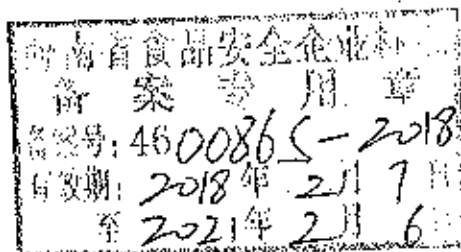 海南省食品安全企业标
备案专用章
备案号:4600865-2018
有效期:2018年2月7日
至2021年2月6